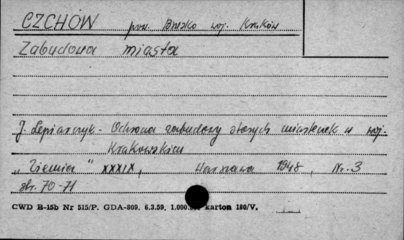 CZCHÓW pow. Brzesko woj. Kraków
Zabudowa miasta
J. Lepiarczyk - Ochrona zabudowy starych miasteczek w woj.
Krakowskim
„Ziemia" XXXIX, Warszawa 1948, Nr. 3
str. 70-71
CWD B-15b Nr 515/P. GDA-809. 6.3.59. 1.000.000 karton 180/V.